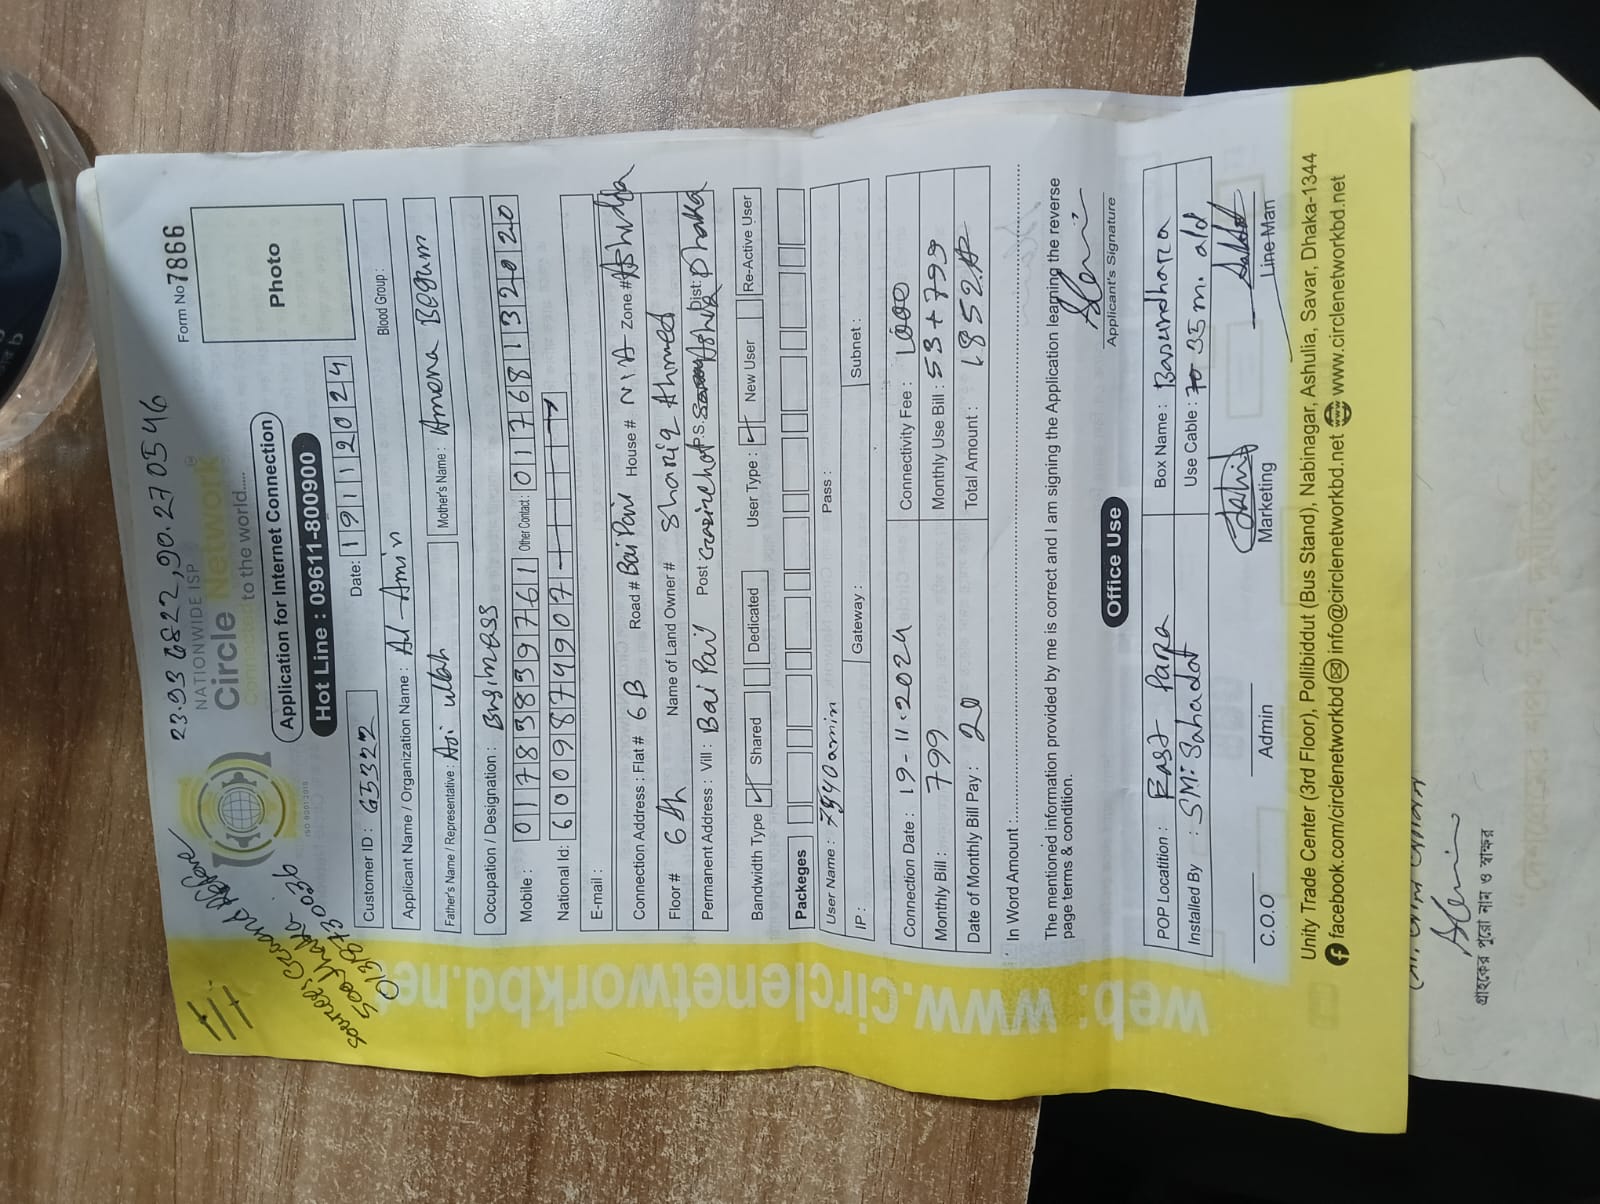 Form No 7866
23.93 6822, 90.270546
NATIONWIDE ISP
Circle Network
Connected to the world.....
ISO 9001:2015
Photo
Application for Internet Connection
Hot Line : 09611-800900
500 Dhaka
013198730036
Customer ID : 65322 Date: 19112024
Applicant Name / Organization Name : Al-Amin Blood Group :
Father's Name / Representative : Abi ullah Mother's Name : Amena Begum
Occupation / Designation : Businass
Mobile : 01783839761 Other Contact: 01768132020
National Id: 6009874907
E-mail :
Connection Address : Flat # 6B Road # Bai Pail House # N/A Zone # Ashulia
Floor # 6th Name of Land Owner # Shariq Ahmed
Permanent Address : Vill : Bai Pail Post Gazirchot P.S. Ashulia Dist: Dhaka
Bandwidth Type Shared Dedicated User Type : New User Re-Active User
Packeges
User Name : 7940amin Pass :
IP : Gateway : Subnet :
Connection Date : 19-11-2024 Connectivity Fee : 1000
Monthly Bill : 799 Monthly Use Bill : 53+799
Date of Monthly Bill Pay : 20 Total Amount : 1852.
In Word Amount
The mentioned information provided by me is correct and I am signing the Application learning the reverse
page terms & condition.
Applicant's Signature
Office Use
POP Locatition : East Para Box Name : Basundhara
Installed By : SM: Sahadat Use Cable : 35 m. old
C.O.O Admin Marketing Line Man
Unity Trade Center (3rd Floor), Pollibiddut (Bus Stand), Nabinagar, Ashulia, Savar, Dhaka-1344
facebook.com/circlenetworkbd info@circlenetworkbd.net www.circlenetworkbd.net
web: www.circlenetworkbd.net
গ্রাহকের পুরো নাম ও স্বাক্ষর